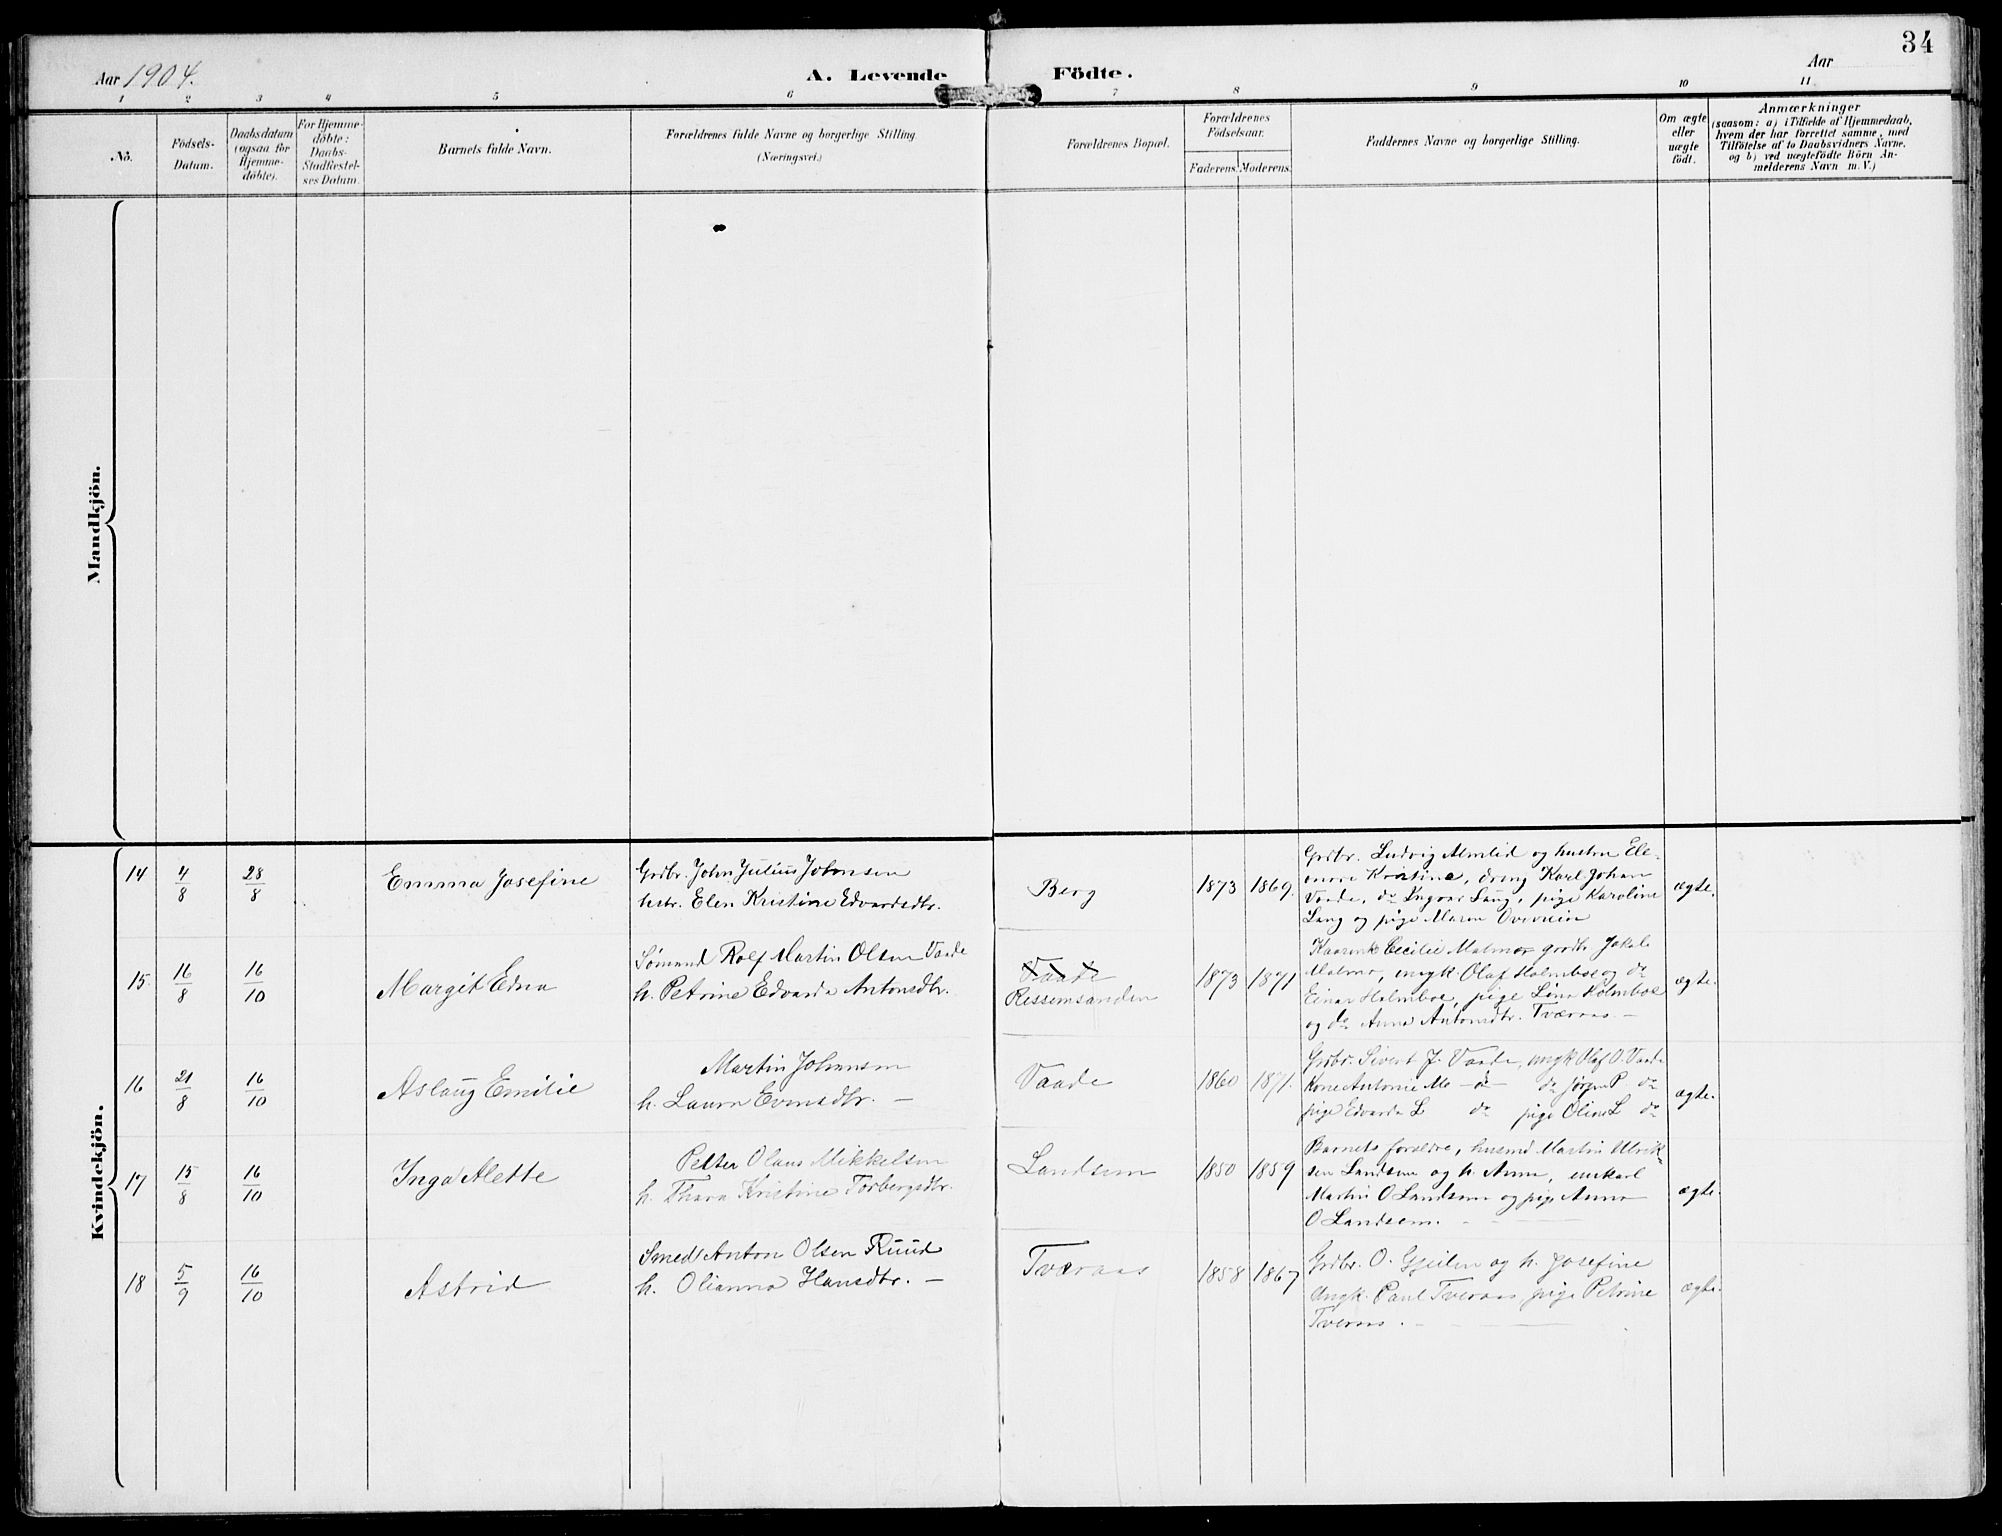 34
Aar 1904.
A. Levende Födte.
Aar
1 2 3 4 5 6 7 8 9 10 11
No.
Födsels-
Datum.
Daabsdatum
(ogsaa for
Hjemme-
döbte).
For Hjemme-
döbte:
Daabs-
Stadfæstel-
ses Datum.
Barnets fulde Navn.
Forældrenes fulde Navne og borgerlige Stilling.
(Næringsvei.)
Forældrenes Bopæl.
Forældrenes
Födselsaar.
Faderens. Moderens.
Faddernes Navne og borgerlige Stilling.
Om ægte
eller
uægte
födt.
Anmærkninger
(saasom: a) i Tilfælde af Hjemmedaab,
hvem der har forrettet samme, med
Tilföielse af to Daabsvidners Navne.
og b) ved uægtefödte Börn An-
melderens Navn m. V.)
Mandkjön.
Kvindekjön.
14
4/8
28/8
Emma Josefine
Grdbr. John Julius Johnsen
hstr. Elen Kristine Edvardsdtr.
Berg
1873 1869.
Grdbr. Ludvig Almlid og hustru Ele-
nore Kristine, dreng Karl Johan
Vaade, do Ingvar Lang, pige Karoline
Lang og pige Maren Overvein
ægte.
15.
16/8
16/10
Margit Edna
Sømand Rolf Martin Olsen Vaade
h. Petrine Edvarda Antonsdtr.
Vaade
Ressemsanden
1873 1871
Cecilie Malmo grdbr. Jakob
Malmo, ungk. Olaf Holmboe og do
Einar Holmboe, pige Lina Holmboe
og do Anna Antonsdtr. Tværaas. —
ægte.
16
21/8
16/10
Aslaug Emilie
Martin Johansen
h. Laura Evensdtr. —
Vaade
1860 1871.
Grdbr. Sivert J. Vaade, ungk Olaf O. Vaade
Kone Antonie M. — do — do Jørgen P. do
pige Edvarda L do pige Oline L do
ægte.
17
15/8
16/10
Inga Alette
Petter Olaus Mikkelsen
h. Thora Kristine Torbergsdtr.
Landsem
1850 1859
Barnets forældre, husmd Martin Ulrik-
sen Landsem og h. Anne, enkarl
Martin O Landsem og pige Anna
O Landsem.
ægte.
18
5/9
16/10
Astrid
Smed Anton Olsen Ruud
h. Olianna Hansdtr. —
Tværaas
1858 1867
Grdbr. O. Gjeilen og h. Josefine
Ungk. Paul Tveraas, pige Petrine
Tveraas.
ægte.